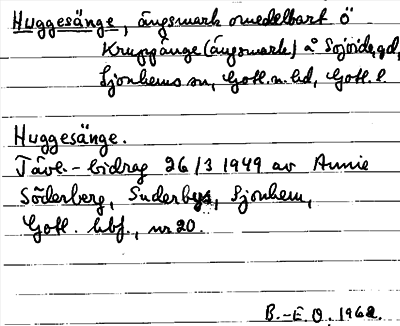 Huggesänge, ängsmark omedelbart Ö
Kruppänge (ängsmark) å Sojvide, gd,
Sjonhems sn, Gotl. n. hd, Gotl. l.
Huggesänge.
Tävl.-bidrag 26/3 1949 av Annie
Söderberg, Suderbys, Sjonhem,
Gotl. hbf., nr 20.
B.-E. O. 1962.